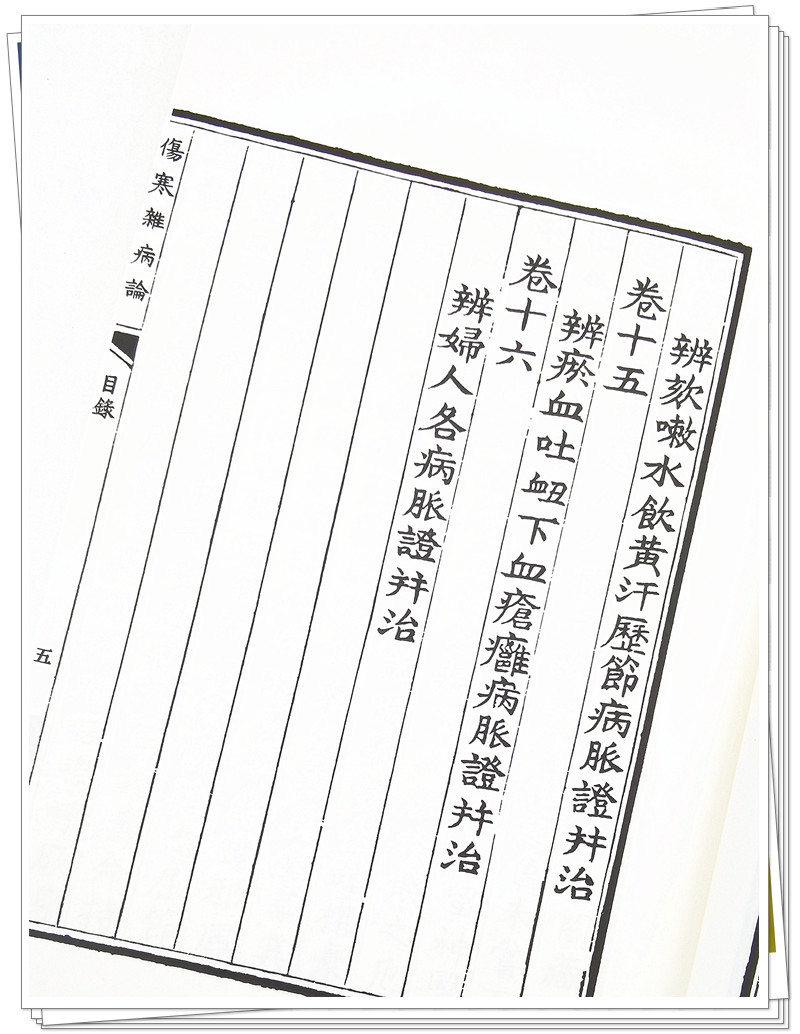 辨欬嗽水飲黃汗歷節病脈證幷治
卷十五
辨瘀血吐衄下血瘡癰病脈證幷治
卷十六
辨婦人各病脈證幷治
傷寒雜病論
目錄
五